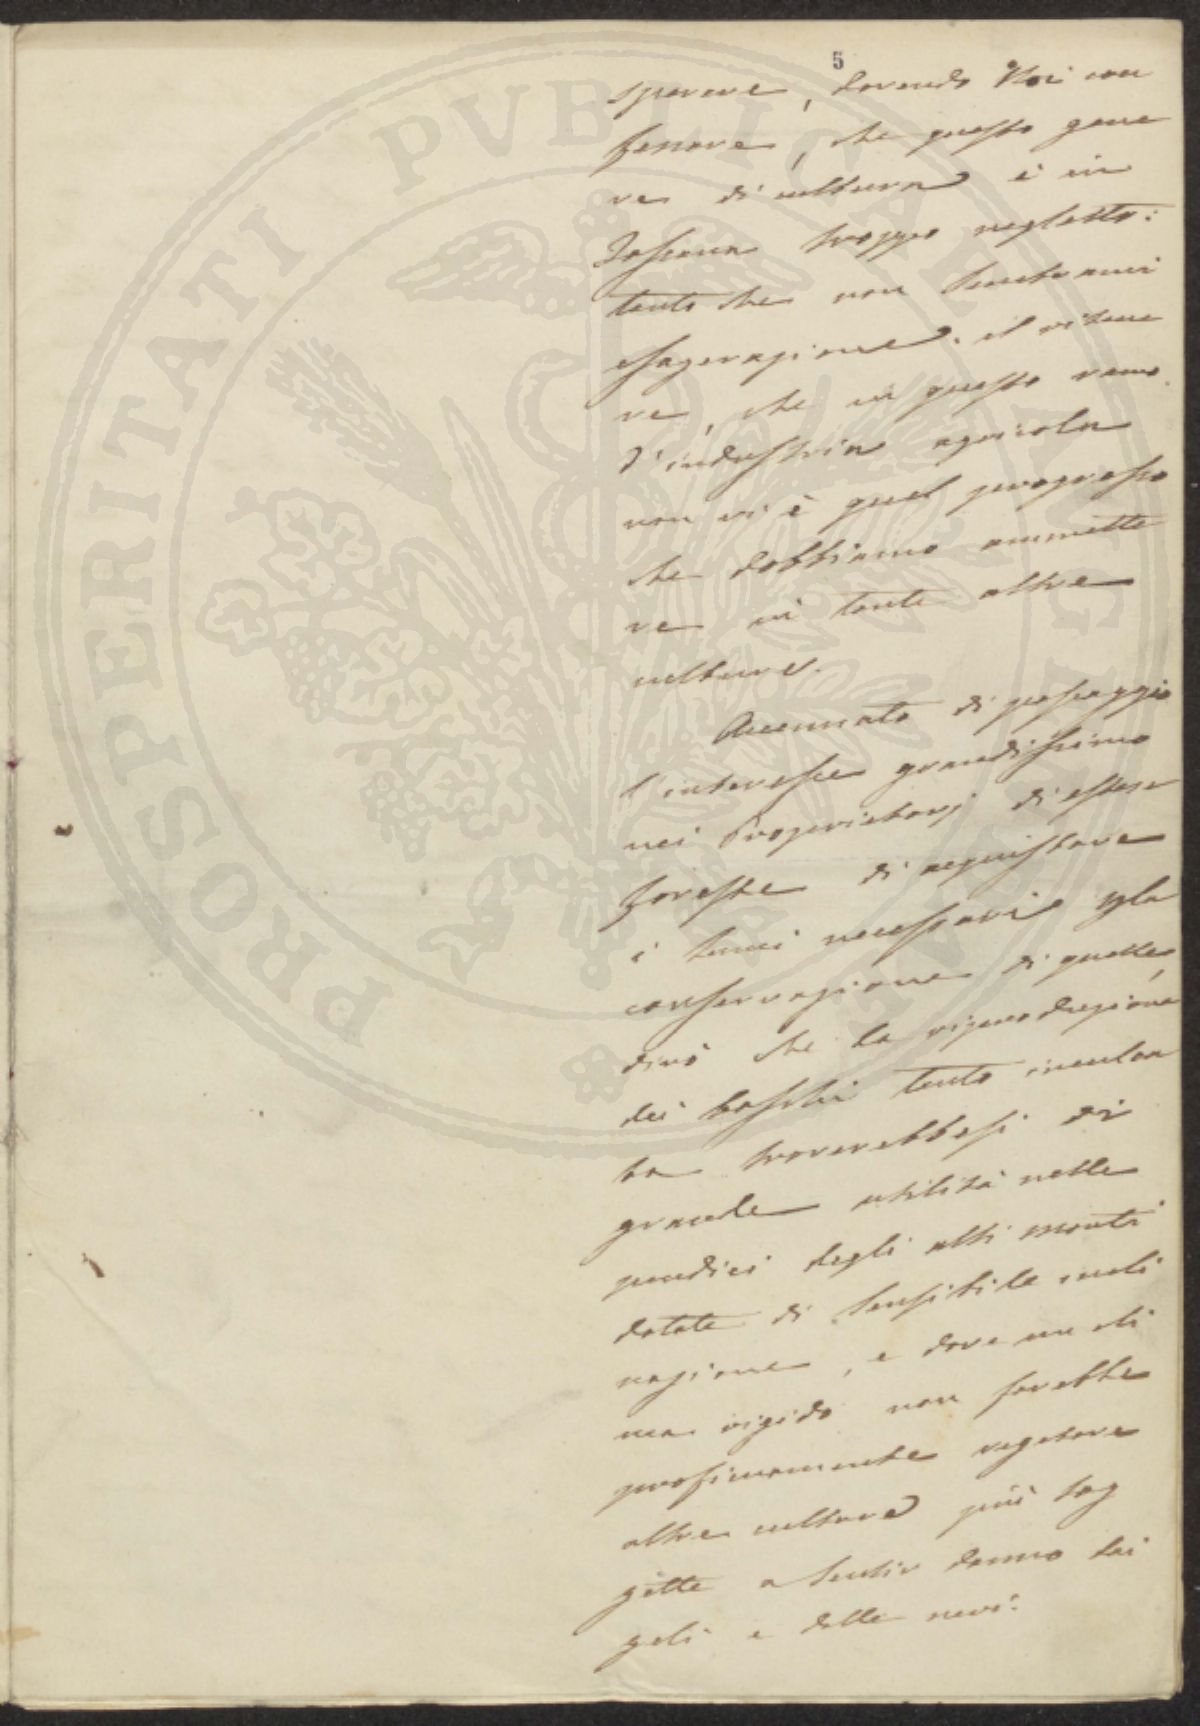 5
sperare, dovendo Noi con
fessare, che questo gene
re di cultura è in
Toscana troppo negletto:
tanto che non sembrami
esagerazione il ritene
re, che in questo ramo
d'industria agricola
non vi è quel progresso
che dobbiamo ammette
re in tante altre
culture.
Accennato di passaggio
l'interesse grandissimo
nei Proprietarj di estese
foreste di acquistare
i lumi necessarii p la
conservazione di quelle,
dirò che la riproduzione
dei boschi tanto inculca
ta troverebbesi di
grande utilità nelle
pendici degli alti monti
dotate di sensibile incli
nazione, e dove un cli
ma rigido non farebbe
proficuamente vegetare
altre culture più sog
gette a sentir danno dai
geli e dalle nevi.
PROSPERITATI PVBLICAE AVGENDAE